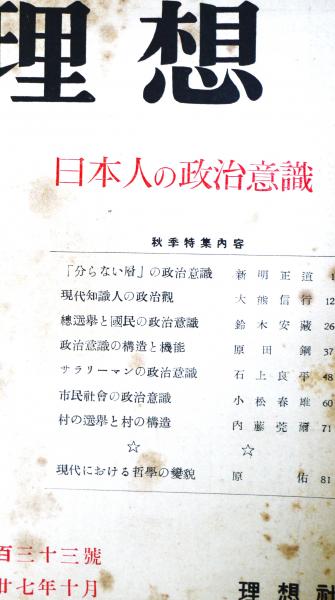 理想
日本人の政治意識
秋季特集內容
「分らない層」の政治意識 新明正道 1
現代知識人の政治觀 大熊信行 12
總選擧と國民の政治意識 鈴木安藏 26
政治意識の構造と機能 原田鋼 37
サラリーマンの政治意識 石上良平 48
市民社會の政治意識 小松春雄 60
村の選擧と村の構造 內藤莞爾 71
☆ ☆
現代における哲學の變貌 原佑 81
百三十三號
廿七年十月
理想社